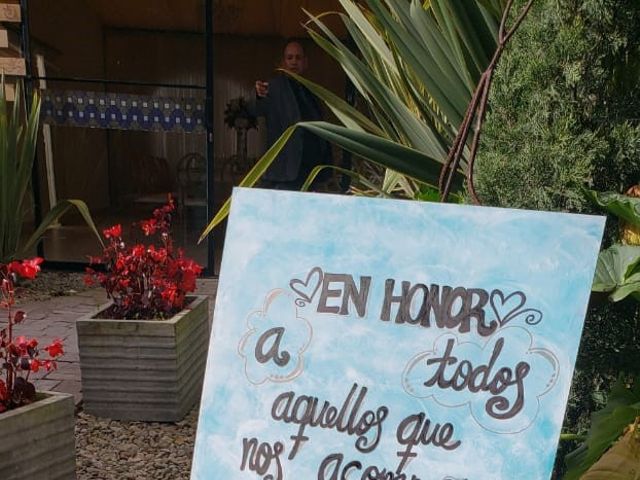 EN HONOR
a todos
aquellos que
nos